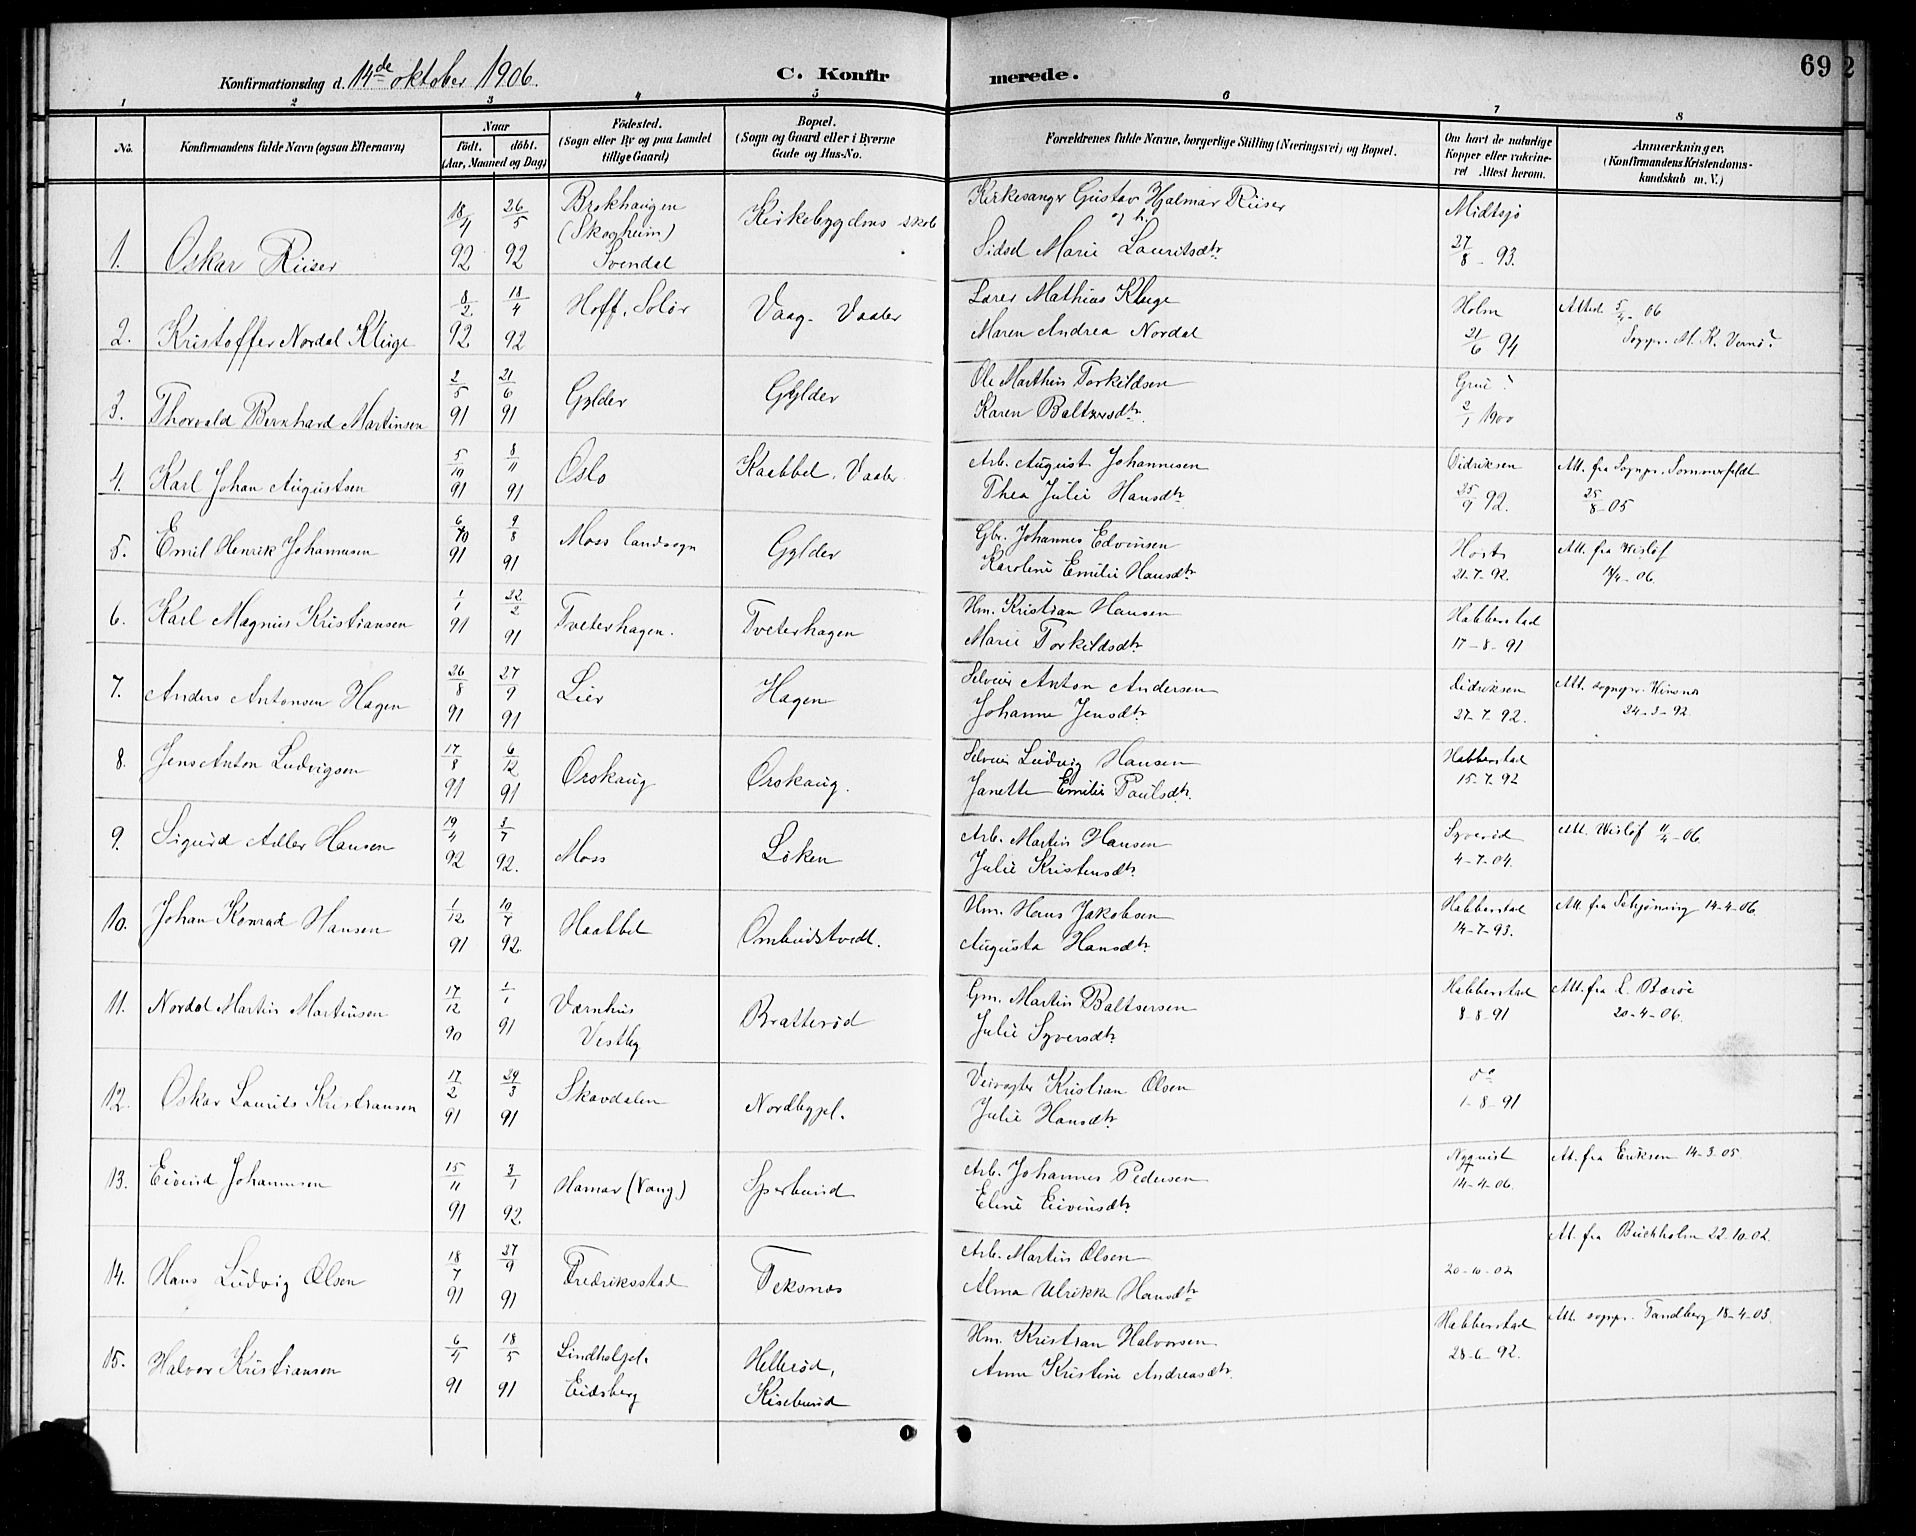 Konfirmationsdag d. 14de oktober 1906. C. Konfirmerede. 69
1 2 3 4 5 6 7 8
No. Konfirmandens fulde Navn (ogsaa Efternavn) Naar født. døbt. (Aar, Maaned og Dag) Fødested. (Sogn eller By og paa Landet tillige Gaard) Bopæl. (Sogn og Gaard eller i Byerne Gade og Hus-No. Forældrenes fulde Navne, borgerlige Stilling (Næringsvei) og Bopæl. Om havt de naturlige Kopper eller vakcineret Attest herom. Anmærkninger. (Konfirmandens Kristendomskundskab m. V.)
1. Oskar Riiser 18/4 92 26/5 92 (Skogheim) Svendal Kirkebygdens skole Kirkesanger Gustav Hjalmar Riiser og h. Sidsel Marie Lauritsdtr. Midtsjø 27/8 - 93.
2. Kristoffer Nordal Kluge 8/2 92 18/4 92 Hoff, Solør Vaag - Vaaler Lærer Mathias Kluge Maren Andrea Nordal Holm 21/6 94 Attest 5/4 - 06 Sogpr. M. K.
3. Thorvald Bernhard Martinsen 2/5 91 21/6 91 Gylder Gylder Ole Marthin Torkildsen Karen Baltzersdtr. Grue? 2/1 1900
4. Karl Johan Augustsen 5/10 91 8/11 91 Oslo Kaabbel, Vaaler Arb. August Johannesen Thea Julie Hansdtr. Didriksen 25/9 92. Att. fra Sognpr. Sommerfeldt 25/8 - 05
5. Emil Henrik Johannesen 91 9/8 91 Moss landsogn Gylder Gbr. Johannes Edvinsen Karoline Emilie Hansdtr. Horts 21-7-92. Att. fra Wisløf 11/4 - 06.
6. Karl Magnus Kristiansen 1/1 91 22/2 91 Tveterhagen. Tveterhagen Hm. Kristian Hansen Marie Torkildsdtr. Habberstad 17-8-91
7. Anders Antonsen Hagen 26/8 91 27/9 91 Lier Hagen Selveier Anton Andersen Johanne Jensdtr. Didriksen 27-7-92. Att. sognpr. Winsnes 24-3-92.
8. Jens Anton Ludvigsen 17/8 91 6/12 91 Ørskaug Ørskaug. Selveier Ludvig Hansen Janette Emilie Paulsdtr. Habberstad 15-7-92
9. Sigurd Adler Hansen 19/4 92 3/7 92. Moss Løken Arb. Martin Hansen Julie Kristensdtr. Syverud 4-7-04. Att. Wisløf 11/4 - 06.
10. Johan Konrad Hansen 1/12 91 10/7 92. Haabbel Ombudstvedt. Hm. Hans Jakobsen Augusta Hansdtr. Habberstad 14-7-93. Att. fra Schjønning 14-4-06.
11. Nordal Martin Martinsen 17/12 90 1/1 91 Værnhus Vestby Bratterød Gm. Martin Baltsersen Julie Syversdtr. Habberstad 8-8-91 Att. fra L. Barøe 20-4-06.
12. Oskar Laurits Kristiansen 17/2 91 29/3 91 Skavdalen Nordbypl. Veivogter Kristian Olsen Julie Hansdtr. Do 1-8-91
13. Eivind Johannesen 15/11 91 3/1 92. Hamar (Vang) Sperbund Arb. Johannes Pedersen Eline Eivinsdtr. Nyquist 14-4-06. At. fra Eriksen 14-3-05
14. Hans Ludvig Olsen 18/7 91 27/9 91 Fredriksstad Teksnæs Arb. Martin Olsen Alma Ulrikke Hansdtr. 20-10-02 At. fra Buchholm 22.10.02.
15. Halvor Kristiansen 6/4 91 18/5 91 Lindholpl. Eidsberg Hellerød, Kisebund Hm. Kristian Halvorsen Anne Kristine Andreasdtr. Habberstad 28-6-92. Att. sognpr. Tandberg 18-4-03.